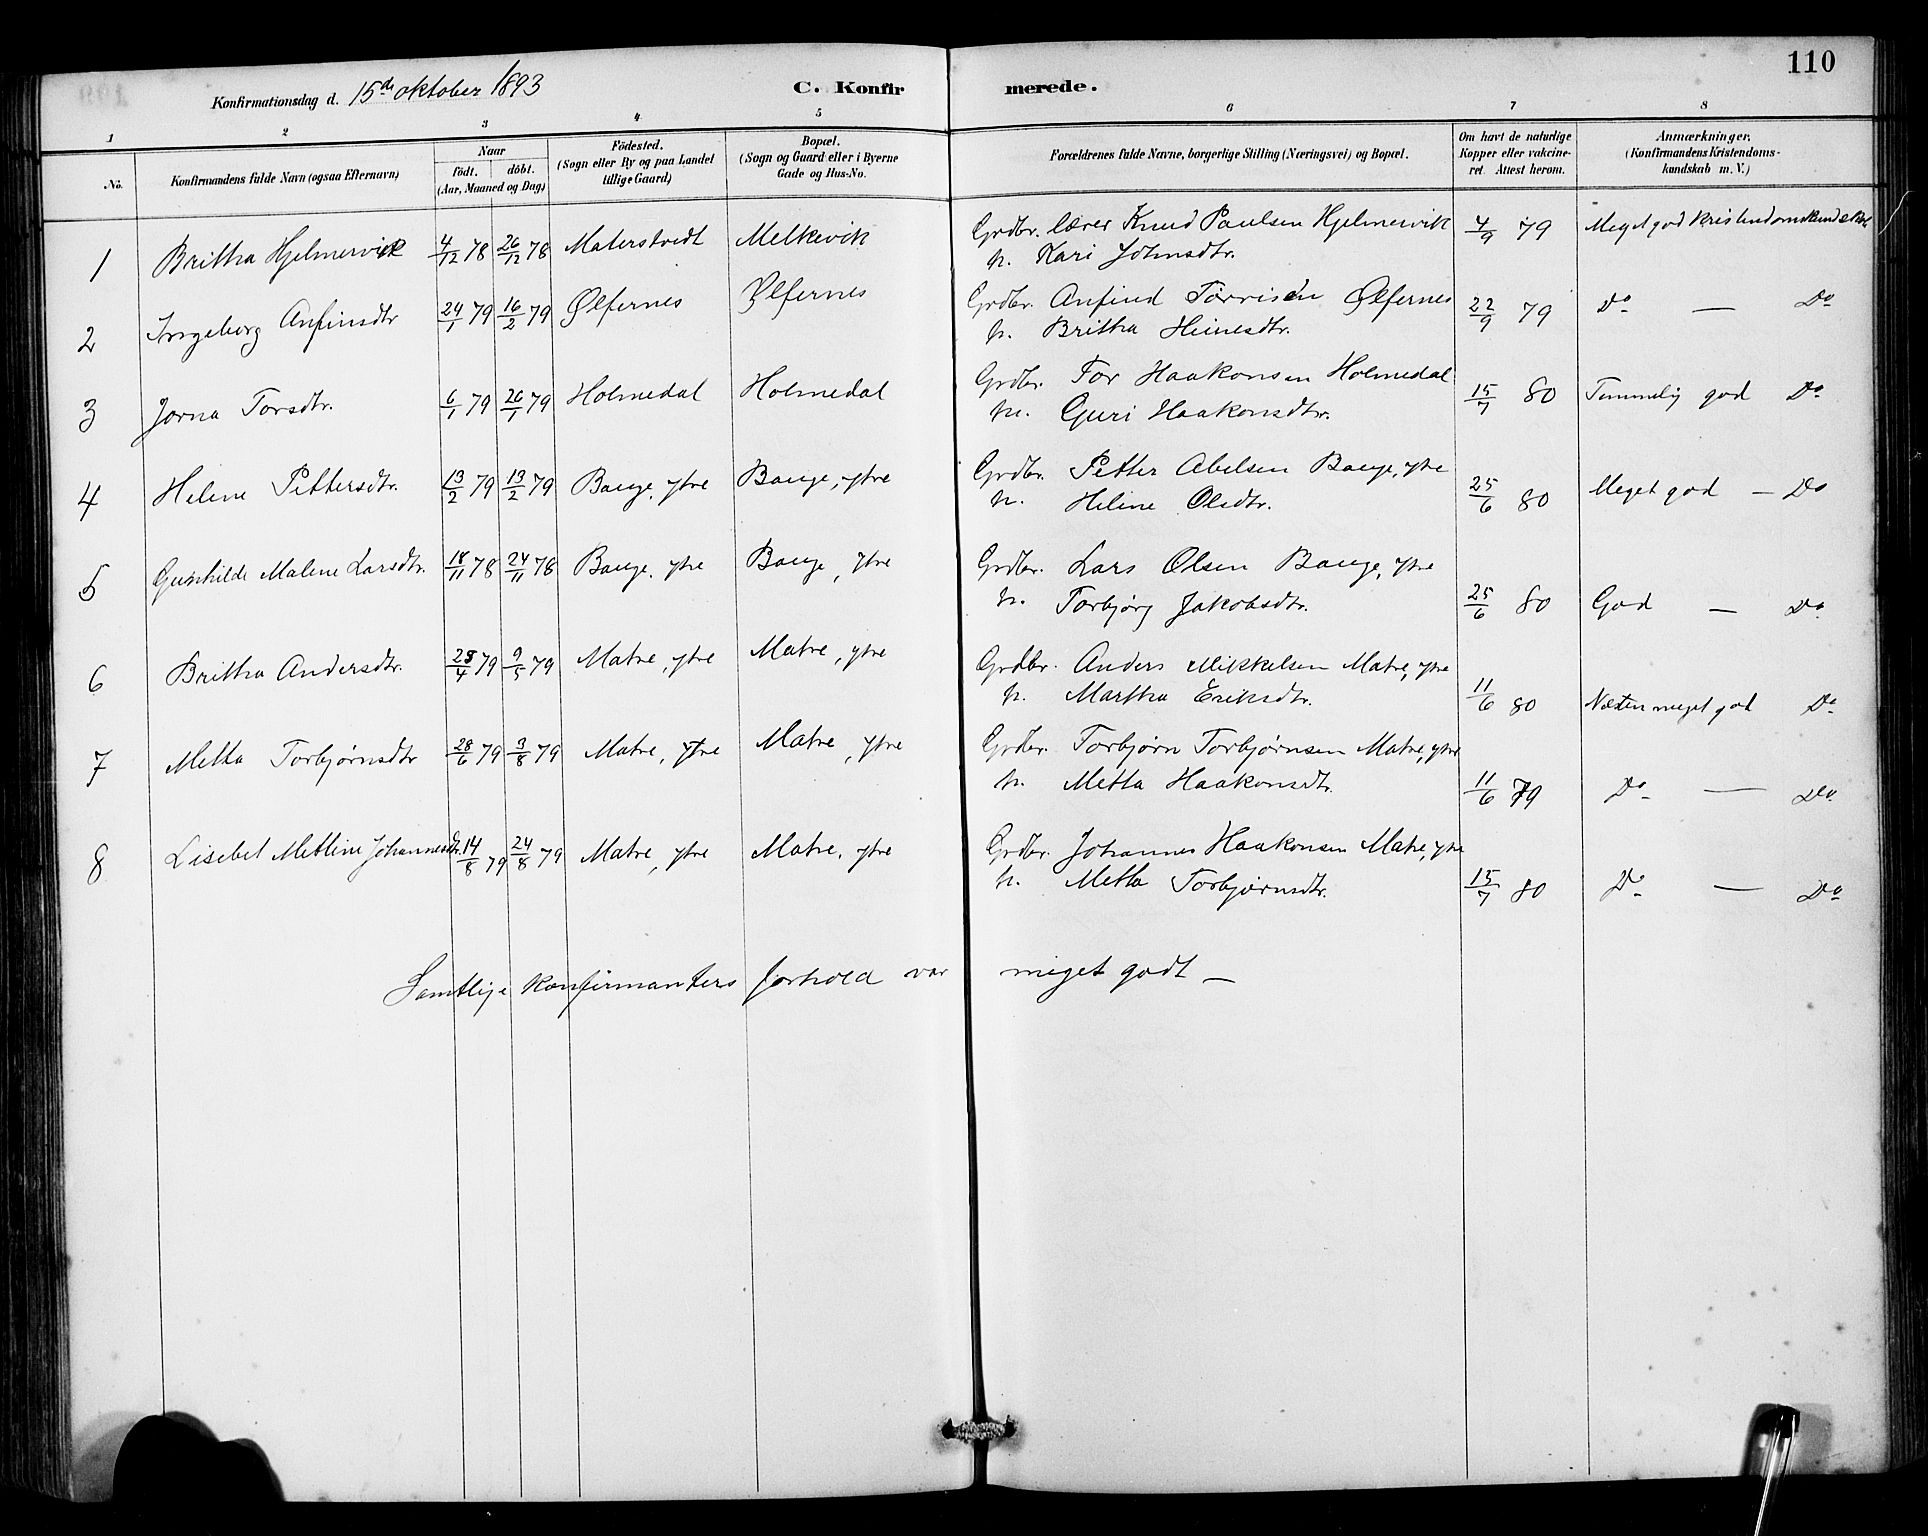 110
Konfirmationsdag d. 15de oktober 1893 C. Konfirmerede.
1 2 3 4 5 6 7 8
No. Konfirmandens fulde Navn (ogsaa Efternavn) Naar födt. döbt. (Aar, Maaned og Dag) Födested. (Sogn eller By og paa Landet tillige Gaard) Bopæl. (Sogn og Gaard eller i Byerne Gade og Hus-No. Forældrenes fulde Navne, borgerlige Stilling (Næringsvei) og Bopæl. Om havt de naturlige Kopper eller vakcineret. Attest herom. Anmærkninger. (Konfirmandens Kristendomskundskab m. V.)
1 Britha Hjelmervik 4/12 78 26/12 78 Materstvedt Melkevik Grdbr. lærer Knud Paulsen Hjelmervik 4/9 79 Meget god kristendomskundskab
h. Kari Johnsdtr.
2 Ingeborg Anfinsdtr 24/1 79 16/2 79 Ølfernes Ølfernes Grdbr. Anfind Torrisen Ølfernes 22/9 79 Do — Do
h. Britha Heinesdtr.
3 Jorna Torsdtr. 6/1 79 26/1 79 Holmedal Holmedal Grdbr. Tor Haakonsen Holmedal 15/7 80 Temmelig god Do
h. Guri Haakonsdtr.
4 Helene Pettersdtr. 13/2 79 13/2 79 Bauge, ytre Bauge, ytre Grdbr. Petter Abelsen Bauge, ytre 25/6 80 Meget god — Do
h. Heline Olsdtr.
5 Gunhilde Malene Larsdtr. 18/11 78 24/11 78 Bauge, ytre Bauge, ytre Grdbr. Lars Olsen Bauge, ytre
h. Torbjørg Jakobsdtr. 25/6 80 God — Do
6 Britha Andersdtr. 28/4 79 9/5 79 Matre, ytre Matre, ytre Grdbr. Anders Mikkelsen Matre, ytre
h. Martha Eriksdtr. 11/6 80 Næsten meget god Do
7 Metta Torbjørnsdtr 28/6 79 3/8 79 Matre, ytre Matre, ytre Grdbr. Torbjørn Torbjørnsen Matre, ytre
h. Metta Haakonsdtr. 11/6 79 Do — Do
8 Lisebet Metline Johannesdtr. 14/8 79 24/8 79 Matre, ytre Matre, ytre Grdbr. Johannes Haakonsen Matre, ytre
h. Metta Torbjørnsdtr. 15/7 80 Do — Do
Samtlige konfirmanters forhold var meget godt —